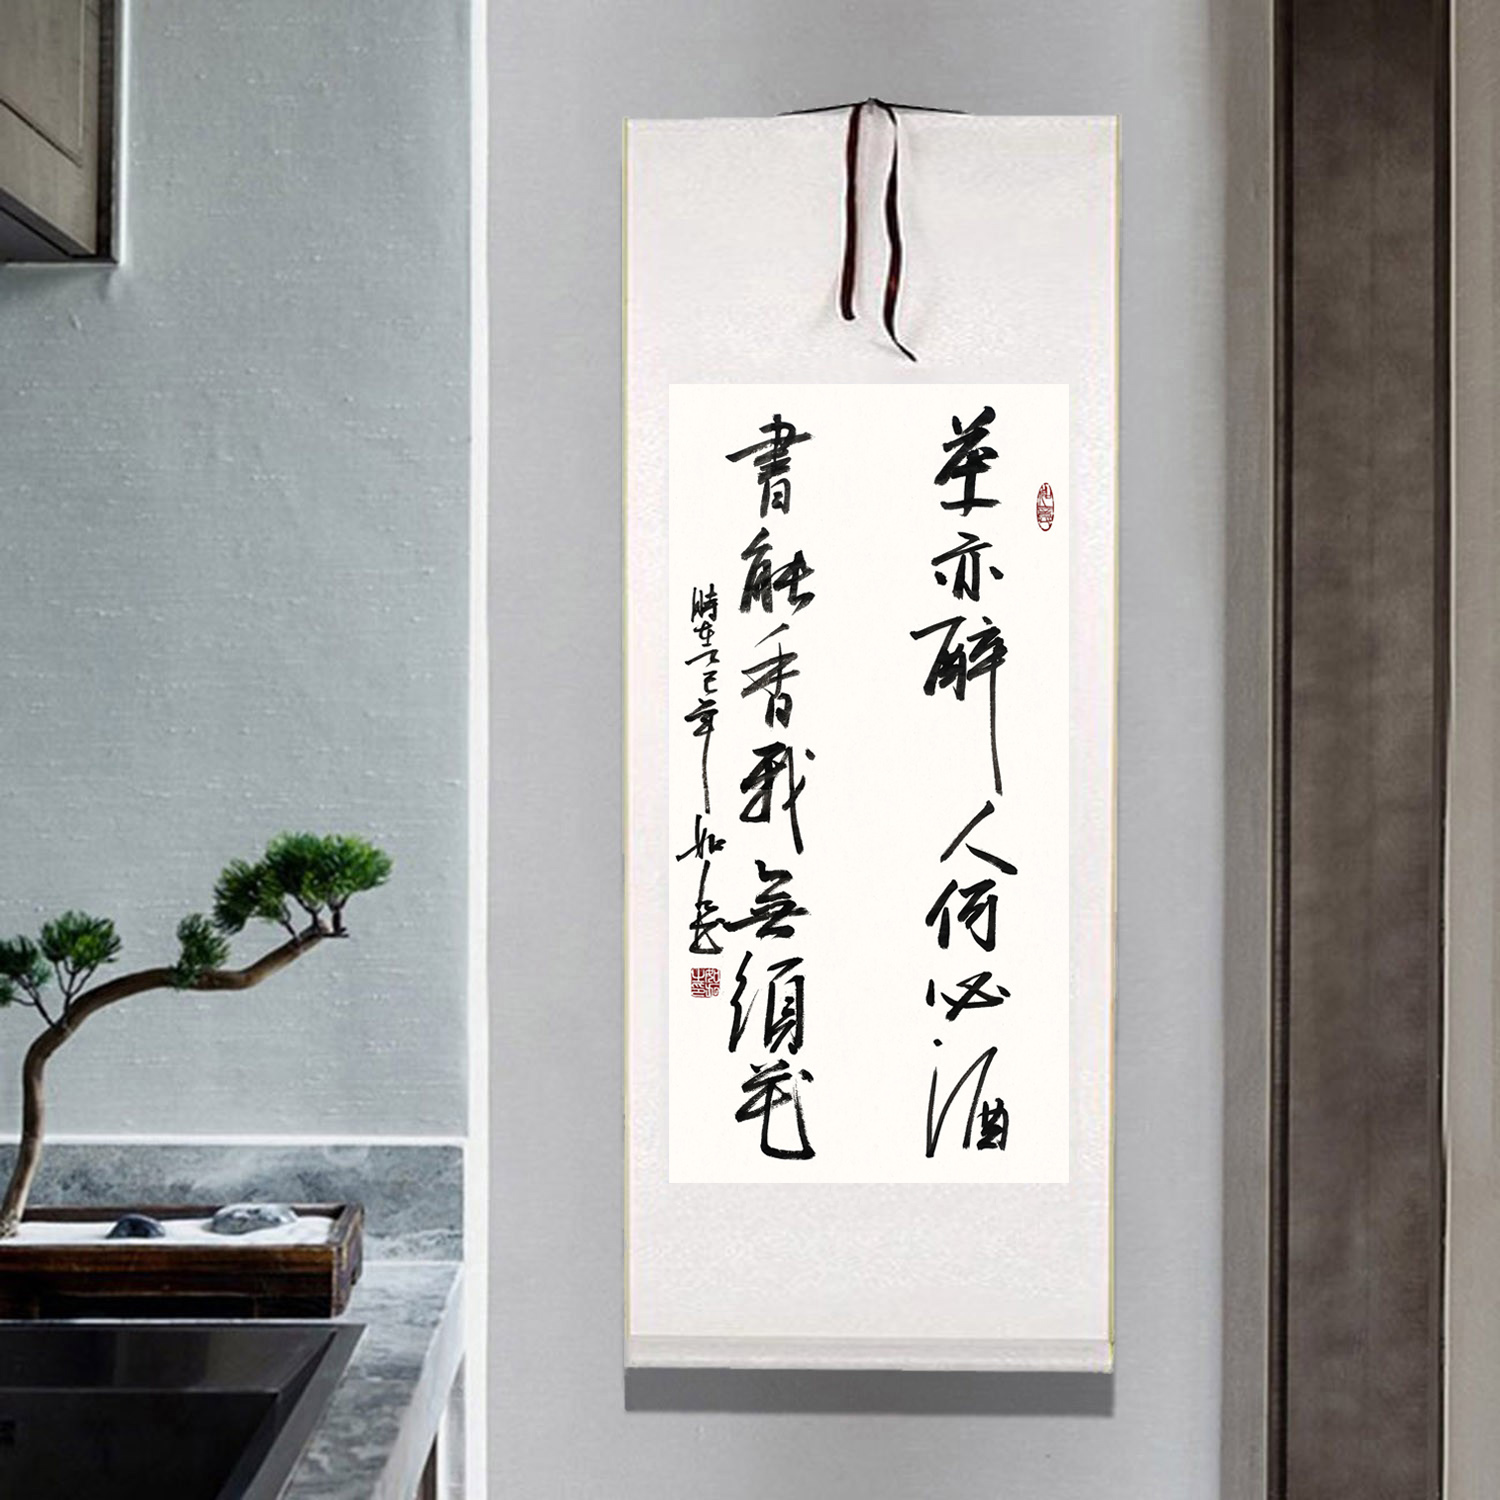 茶亦醉人何必酒
書能香我無須花
時在乙巳年